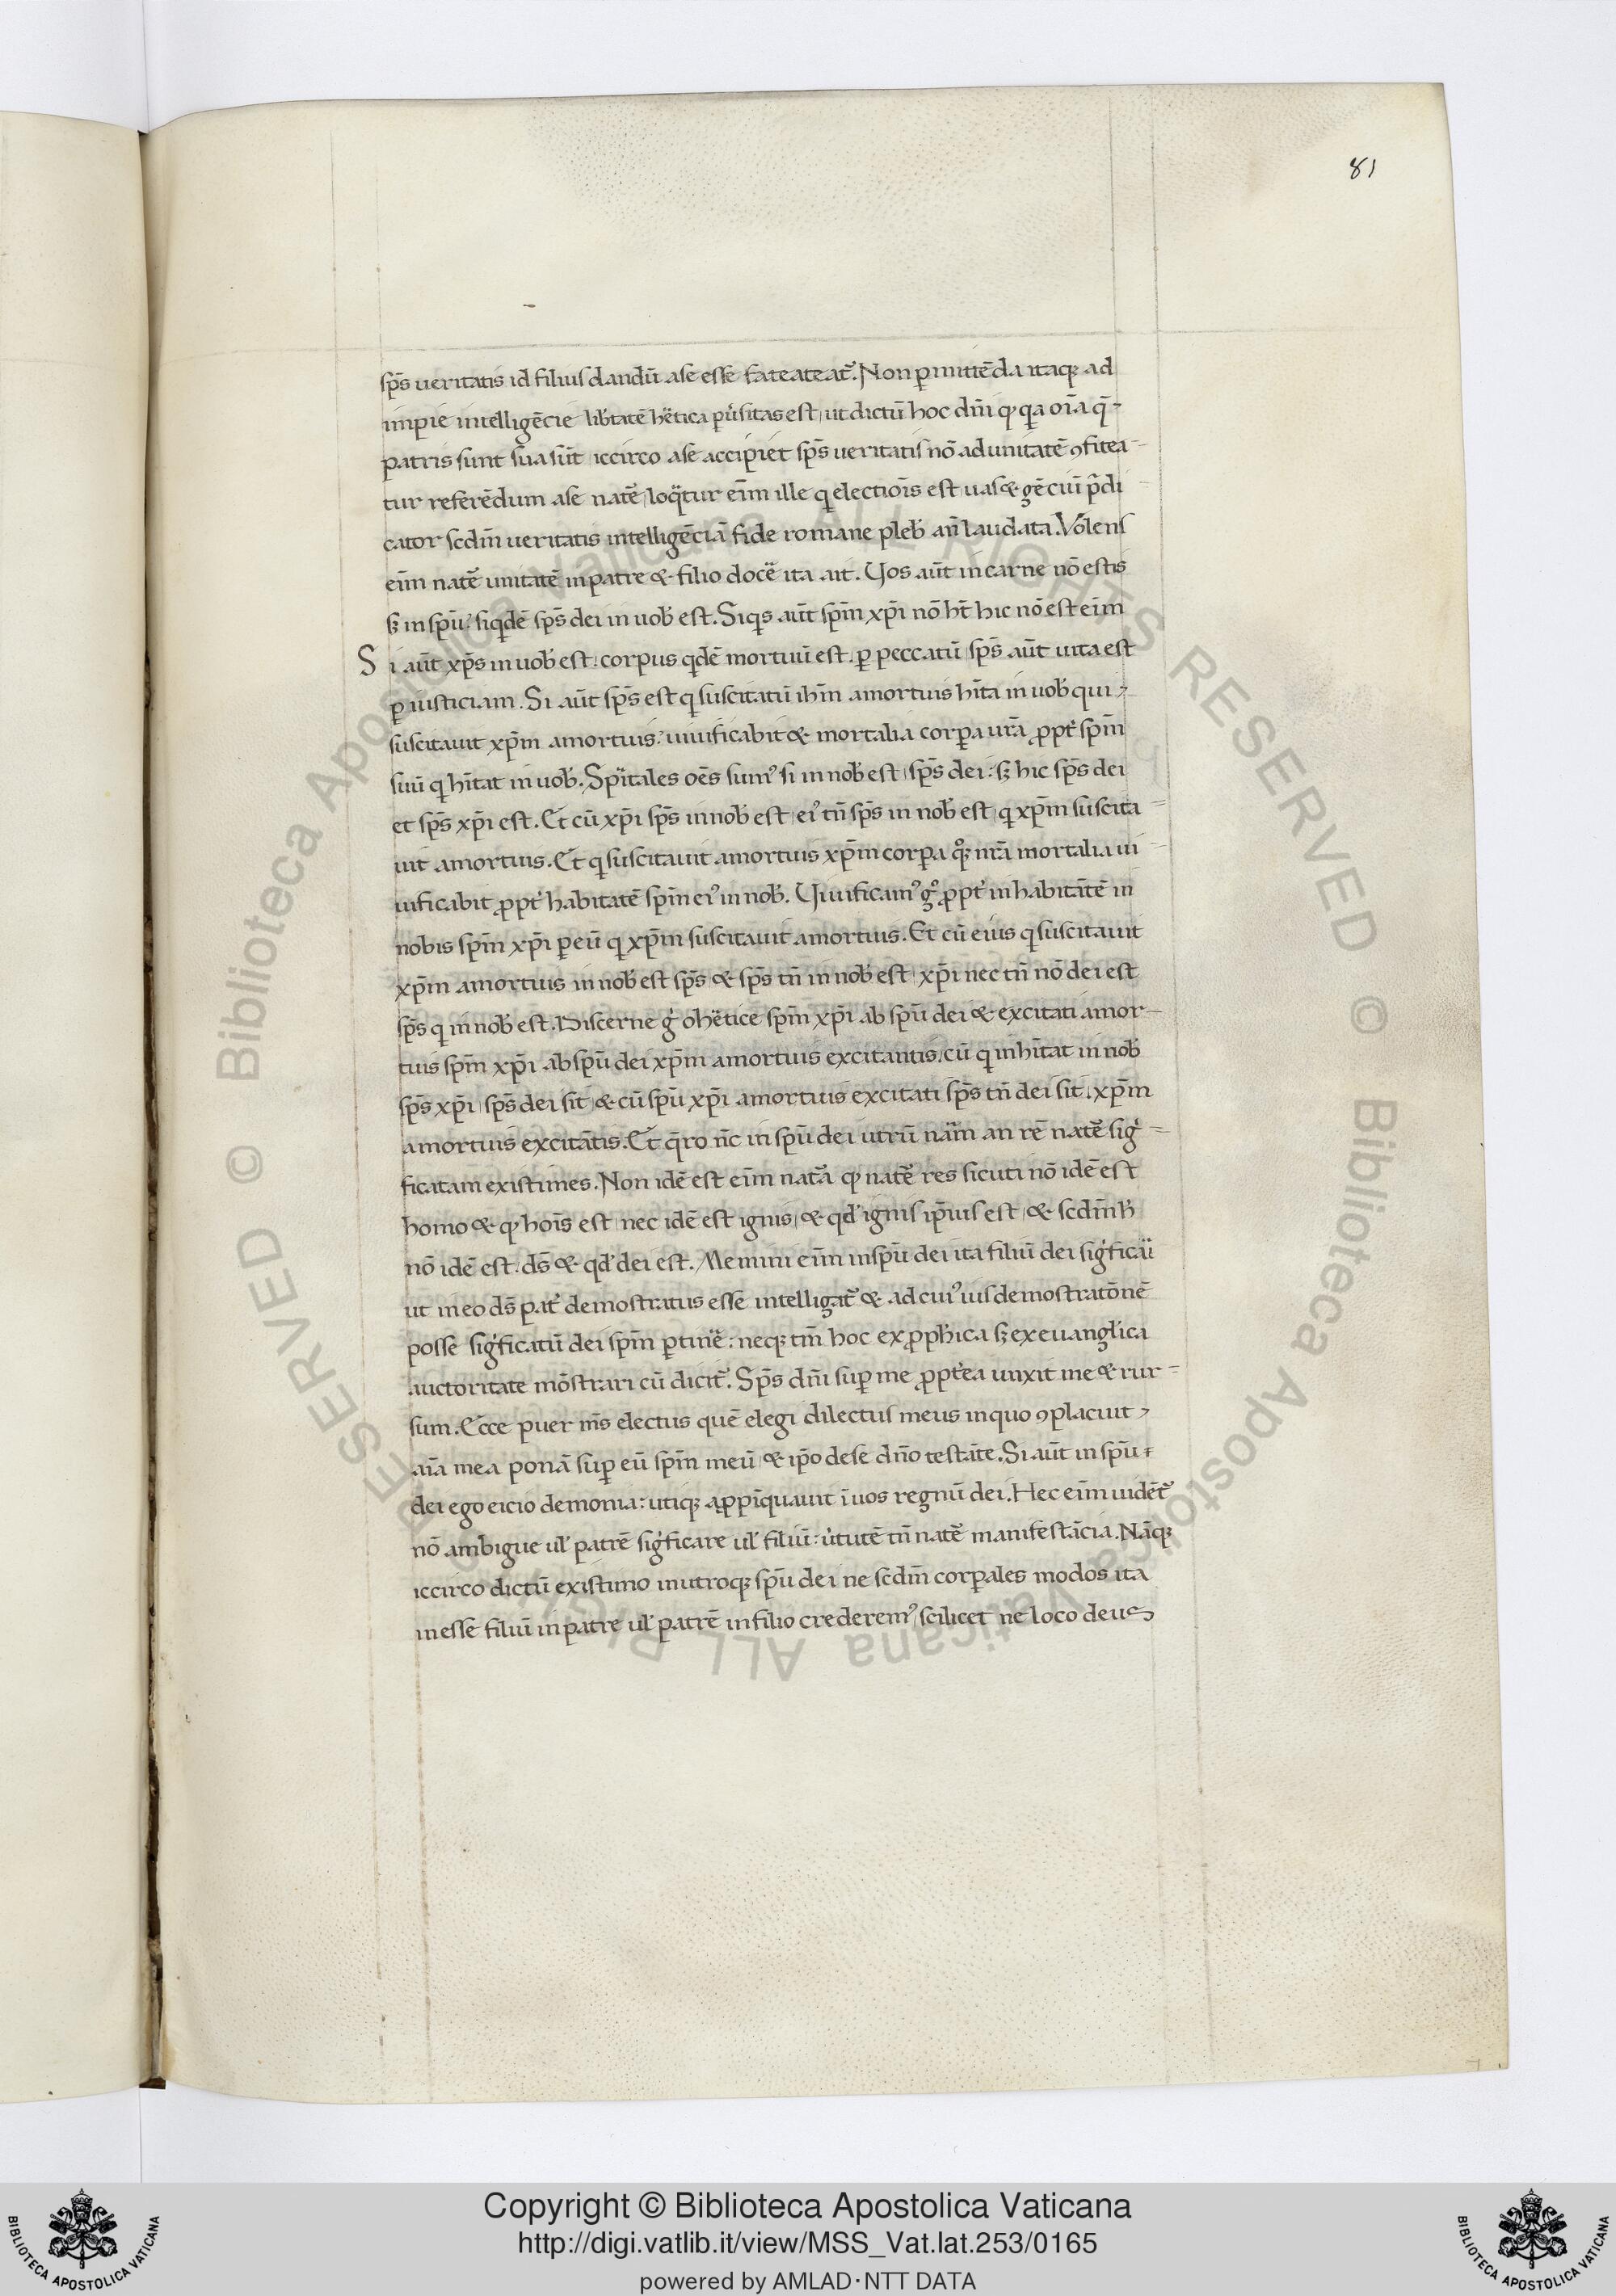 81
sp̄s ueritatis id filius dandū a se esse fateateat᷑. Non ꝑmittēda itaqꝫ ad
impie intelligēcie lib̓tatē h̓etica ꝑu̓sitas est, ut dictū hoc dn̄i qͥ qͣa oīa q̄
patris sunt sua sūt, iccirco a se accipiet sp̄s ueritatis nō ad unitatē ꝯfitea-
tur referēdum a se natē, loqͣtur eīm ille q̓ electiōis est uas & gēcium p̄di
cator scdm̄ ueritatis intelligēciā fide romane pleb̓ an̄ laudata. Volens
eīm natē unitatē in patre & filio docē ita ait. Vos aūt in carne nō estis
sꝫ in sp̄u: siqͥdē sp̄s dei in uob̓ est. Siqͥs aūt sp̄m xp̄i nō hт̄ hic nō est eīm
Si aūt xp̄s in uob̓ est: corpus qͥdē mortuū est ꝑ peccatū, sp̄s aūt uita est
ꝑ iusticiam. Si aūt sp̄s est q̓ suscitatū ihm̄ a mortuis hīta in uob̓ qui
suscitauit xp̄m a mortuis: uiuificabit & mortalia corꝑa ur̄a ꝓpt̓ sp̄m
suū q̓ hītat in uob̓. Spīitales oēs sumꝰ si in nob̓ est, sp̄s dei: sꝫ hic sp̄s dei
et sp̄s xp̄i est. Et cū xp̄i sp̄s in nob̓ est, eiꝰ tn̄ sp̄s in nob̓ est, q̓ xp̄m suscita-
uit a mortuis. Et q̓ suscitauit a mortuis xp̄m corꝑa qͦꝫ nr̄a mortalia ui-
uificabit ꝓpt̓ habitatē sp̄m eiꝰ in nob̓. Viuificamꝰ gͦ ꝓpt̓ inhabitātē in
nobis sp̄m xp̄i ꝑ eū q̓ xp̄m suscitauit a mortuis. Et cū eius q̓ suscitauit
xp̄m a mortuis in nob̓ est sp̄s & sp̄s tn̄ in nob̓ est, xp̄i nec tn̄ nō dei est
sp̄s q̓ in nob̓ est. Discerne g̓ o h̓etice sp̄m xp̄i ab sp̄u dei & excitati a mor-
tuis sp̄m xp̄i ab sp̄u dei xp̄m a mortuis excitantis, cū q̓ inhītat in nob̓
sp̄s xp̄i, sp̄s dei sit, & cū sp̄u xp̄i a mortuis excitati sp̄s tn̄ dei sit, xp̄m
a mortuis excitātis. Et q̄ro n̄c in sp̄u dei utrū nām an rē natē sig̓
ficatam existimes. Non idē est eīm natͣa qͥ natē res sicuti nō idē est
homo & qͥ hoīs est, nec idē est ignis, & qd̓ ignis ip̄ius est, & scdm̄ h̓
nō idē est: ds̄ & qd̓ dei est. Memini eīm in sp̄u dei ita filiū dei sig̓ficāi
ut in eo ds̄ pat̓ demostratus esse intelligat᷑ & ad cuiꝰ ius demostratōnē
posse sig̓ficatū dei sp̄m ꝑtinē: neqꝫ tm̄ hoc ex ꝓph̓ica sꝫ ex euangl̓ica
auctoritate mōstrari cū dicit᷑. Sp̄s dn̄i suꝑ me ꝓpt̓ea unxit me & rur-
sum. Ecce puer ms̄ electus quē elegi dilectus meus in quo ꝯplacuit
aīa mea ponā suꝑ eū sp̄m meū, & ip̄o de se dn̄o testāte. Si aūt in sp̄u
dei ego eicio demonia: utiqꝫ aꝓpīquauit ī uos regnū dei. Hec eīm uidēt᷑
nō ambigue ul̓ patrē sig̓ficare ul̓ filiū: u̓tutē tn̄ natē manifestācia. Nāqꝫ
iccirco dictū existimo in utroqꝫ sp̄u dei ne scdm̄ corꝑales modos ita
inesse filiū in patre ul̓ patrē in filio crederemꝰ, scilicet ne loco deus
Copyright © Biblioteca Apostolica Vaticana
http://digi.vatlib.it/view/MSS_Vat.lat.253/0165
powered by AMLAD·NTT DATA